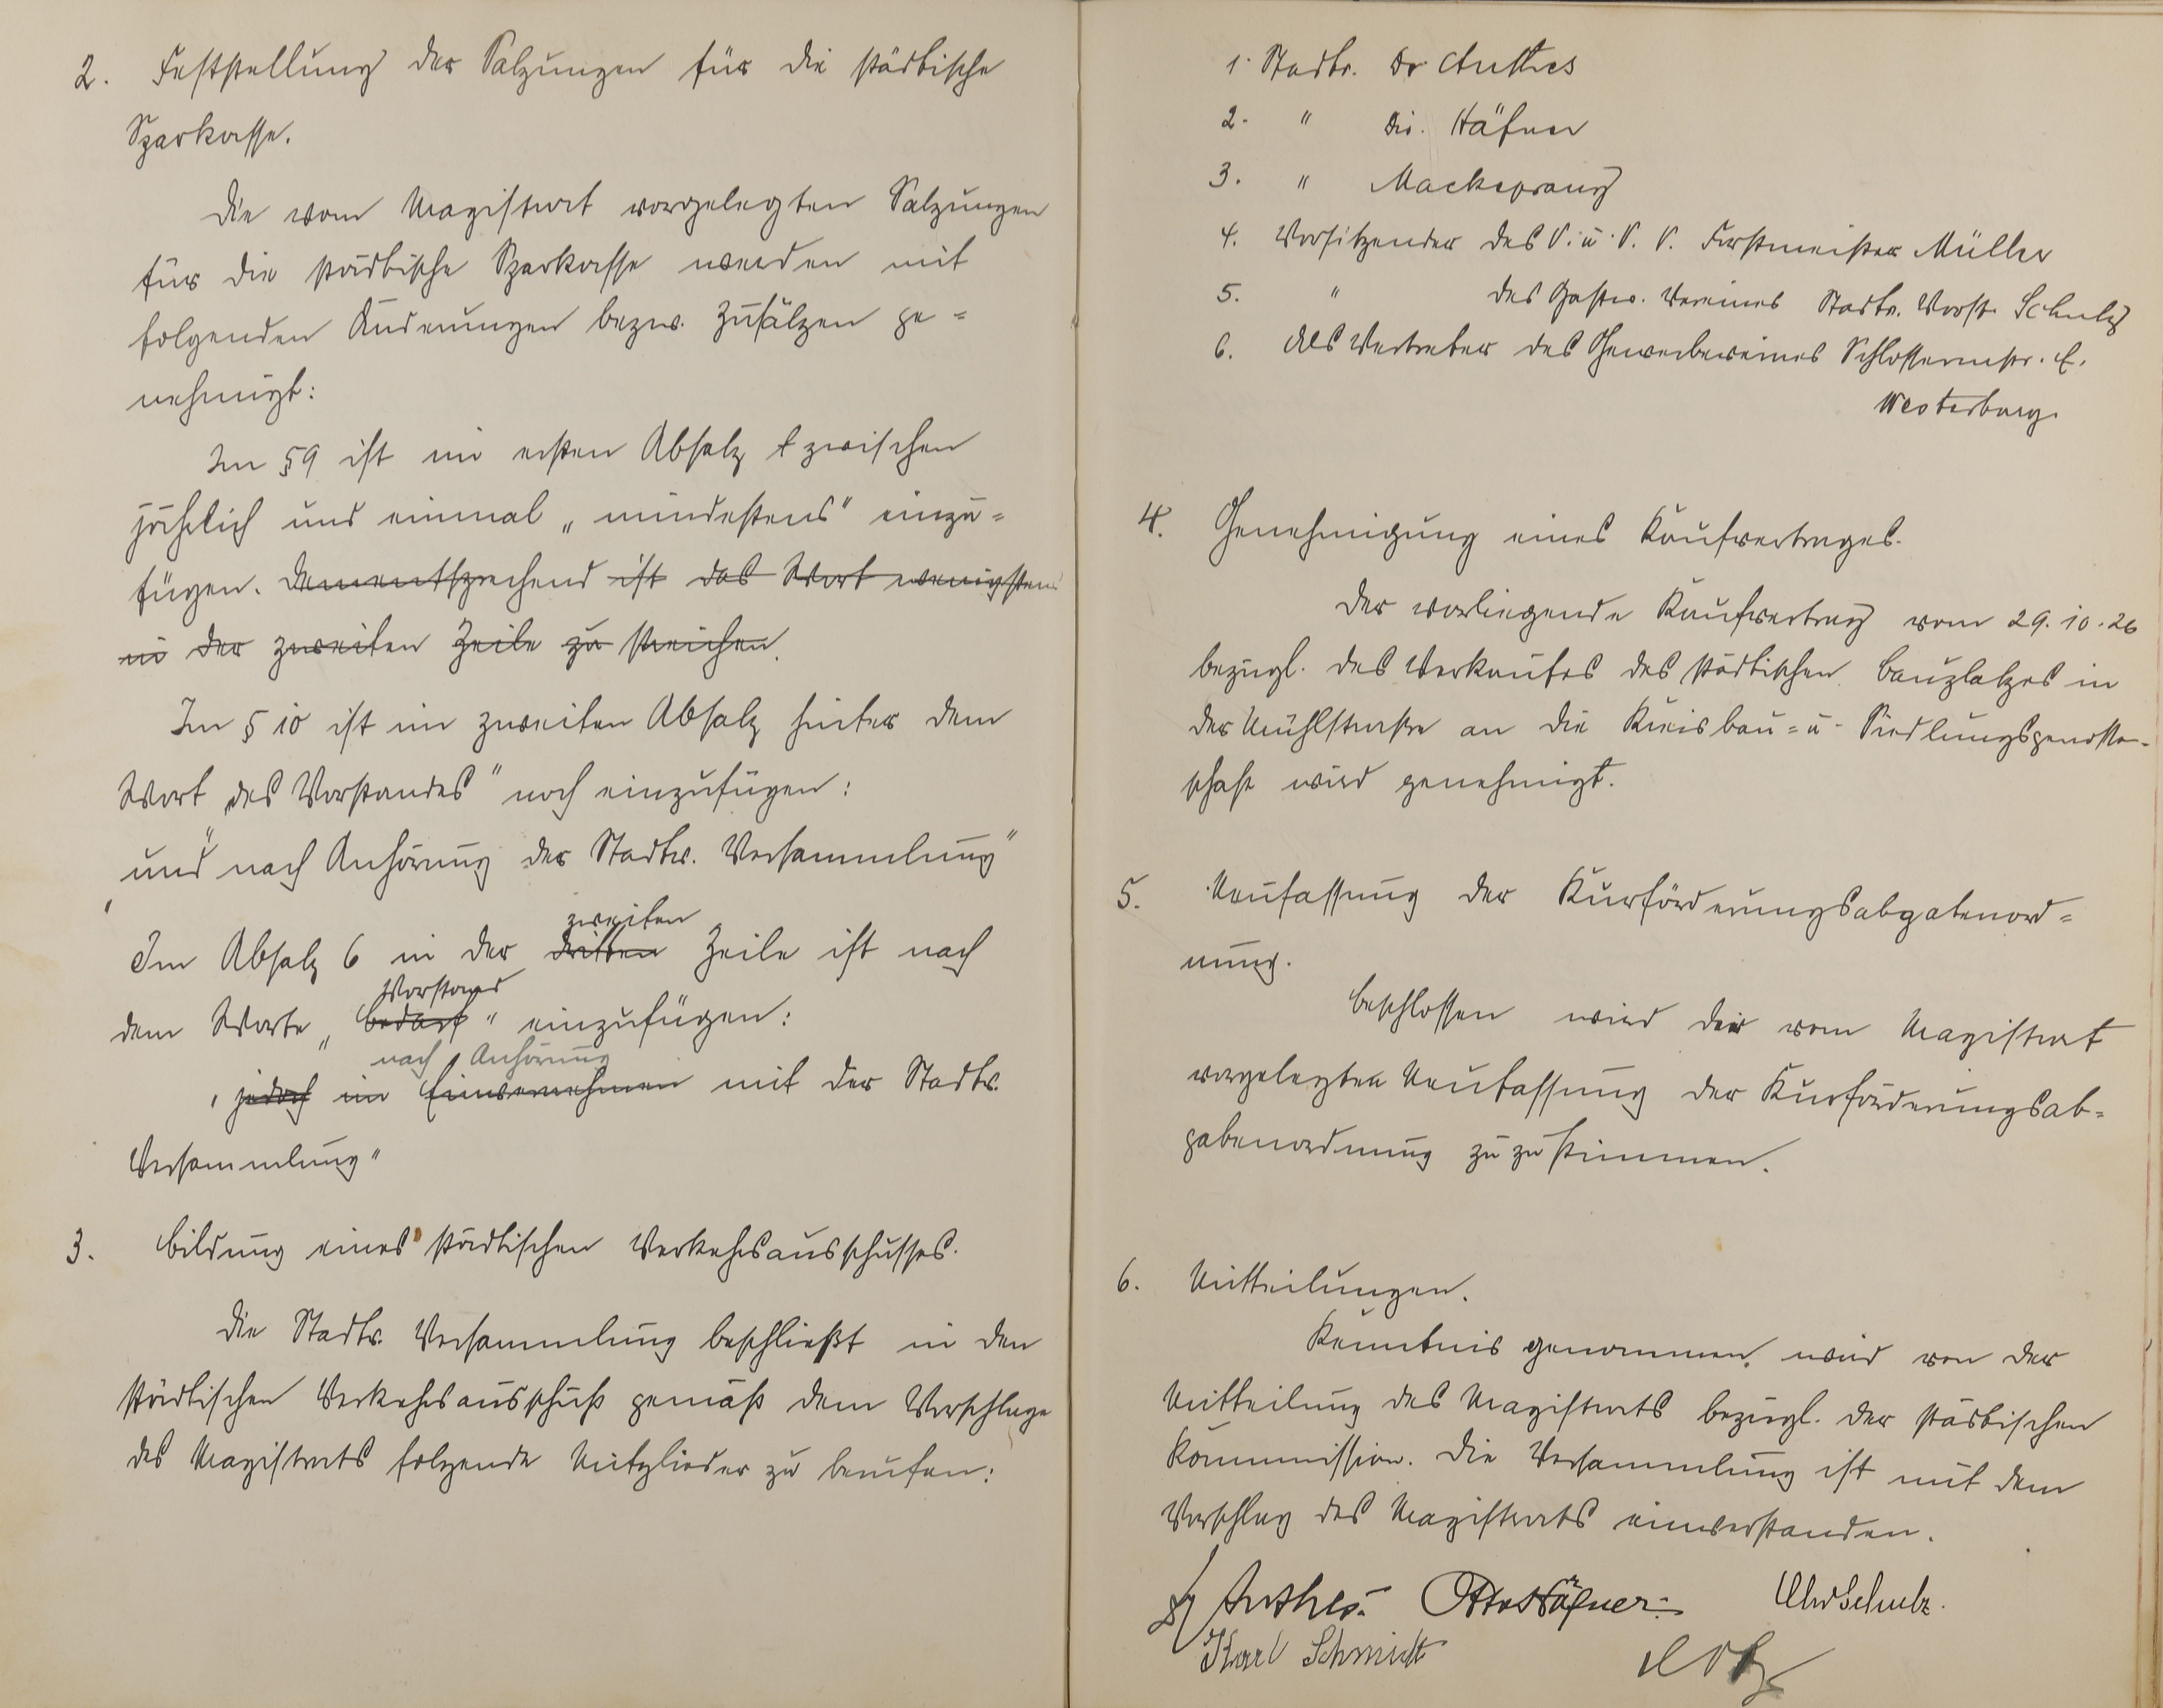 2. Feststellung der Satzungen für die städtische
Sparkasse.
Die vom Magistrat vorgelegten Satzungen
für die städtische Sparkasse werden mit
folgenden Änderungen bezw. Zusätzen ge=
nehmigt:
Im § 9 ist im ersten Absatz zwischen
jährlich und einmal „mindestens" einzu=
fügen. Dementsprechend ist das Wort wenigstens
in der zweiten Zeile zu streichen.
Im § 10 ist im zweiten Absatz hinter dem
Wort „des Vorstandes" noch einzufügen:
"und nach Anhörung der Stadtv. Versammlung"
zweiten
Im Absatz 6 in der dritten Zeile ist nach
Vorstand
dem Worte „bedarf" einzufügen:
nach Anhörung
, jedoch im Einvernehmen mit der Stadtv.
Versammlung"
3. Bildung eines städtischen Verkehrsausschusses.
Die Stadtv. Versammlung beschließt in den
städtischen Verkehrsausschuß gemäß dem Vorschlage
des Magistrats folgende Mitglieder zu berufen:
1. Stadtv. Dr. Anthes
2. " Dir. Häfner
3. " Mackeprang
4. Vorsitzender des V. u. V. V. Forstmeister Müller
5. " des Gastw. Vereines Stadtv. Vorst. Schulz
6. Als Vertreter des Gewerbevereines Schlossermstr. E.
Westerburg.
4. Genehmigung eines Kaufvertrages.
Der vorliegende Kaufvertrag vom 29.10.26
bezügl. des Verkaufes des städtischen Bauplatzes in
der Mühlstraße an die Kreisbau= u. Siedlungsgenossen-
schaft wird genehmigt.
5. Neufassung der Kurförderungsabgabenord=
nung.
Beschlossen wird der vom Magistrat
vorgelegten Neufassung der Kurförderungsab=
gabenordnung zuzustimmen.
6. Mitteilungen.
Kenntnis genommen wird von der
Mitteilung des Magistrats bezügl. der städtischen
Kommission. Die Versammlung ist mit dem
Vorschlag des Magistrats einverstanden.
Anthes. Otto Häfner Schulz.
Karl Schmidt